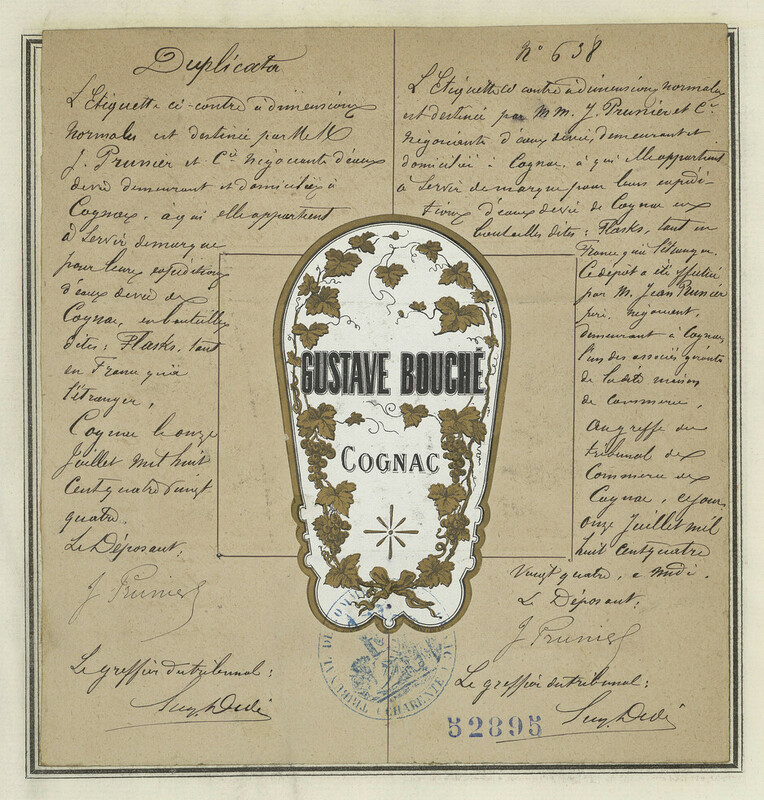 Duplicata
L'Etiquette ci-contre à dimensions
normales est destinée par M M
J. Prunier et Cie Négociants d'eaux
devie demeurant et domiciliés à
Cognac, à qui elle appartient
à Servir de marque
pour leurs expéditions
d'eaux devie de
Cognac, en bouteilles
dites: Flasks, tant
en France qu'à
l'étranger,
Cognac le onze
Juillet mil huit
Cent quatre vingt
quatre.
Le Déposant,
J. Prunier
Le greffier du tribunal:
N° 638
L'Etiquette ci contre à dimensions normales
est destinée par M M. J. Prunier et Cie
Négociants d'eaux devie, demeurant et
domiciliés à Cognac, à qui elle appartient
à Servir de marque pour leurs expédi-
tions d'eaux devie de Cognac en
bouteilles dites: Flasks, tant en
France qu'à l'étranger.
Ce dépôt a été effectué
par M. Jean Prunier
négociant,
demeurant à Cognac,
l'un des associés gérants
de la dite maison
de Commerce,
au greffe du
tribunal de
Commerce de
Cognac, ce jour
onze Juillet mil
huit cent quatre
Vingt quatre, à midi.
Le Déposant,
J. Prunier
Le greffier du tribunal:
GUSTAVE BOUCHÉ
COGNAC
TRIBUNAL DE COMM
CHARENTE
52895